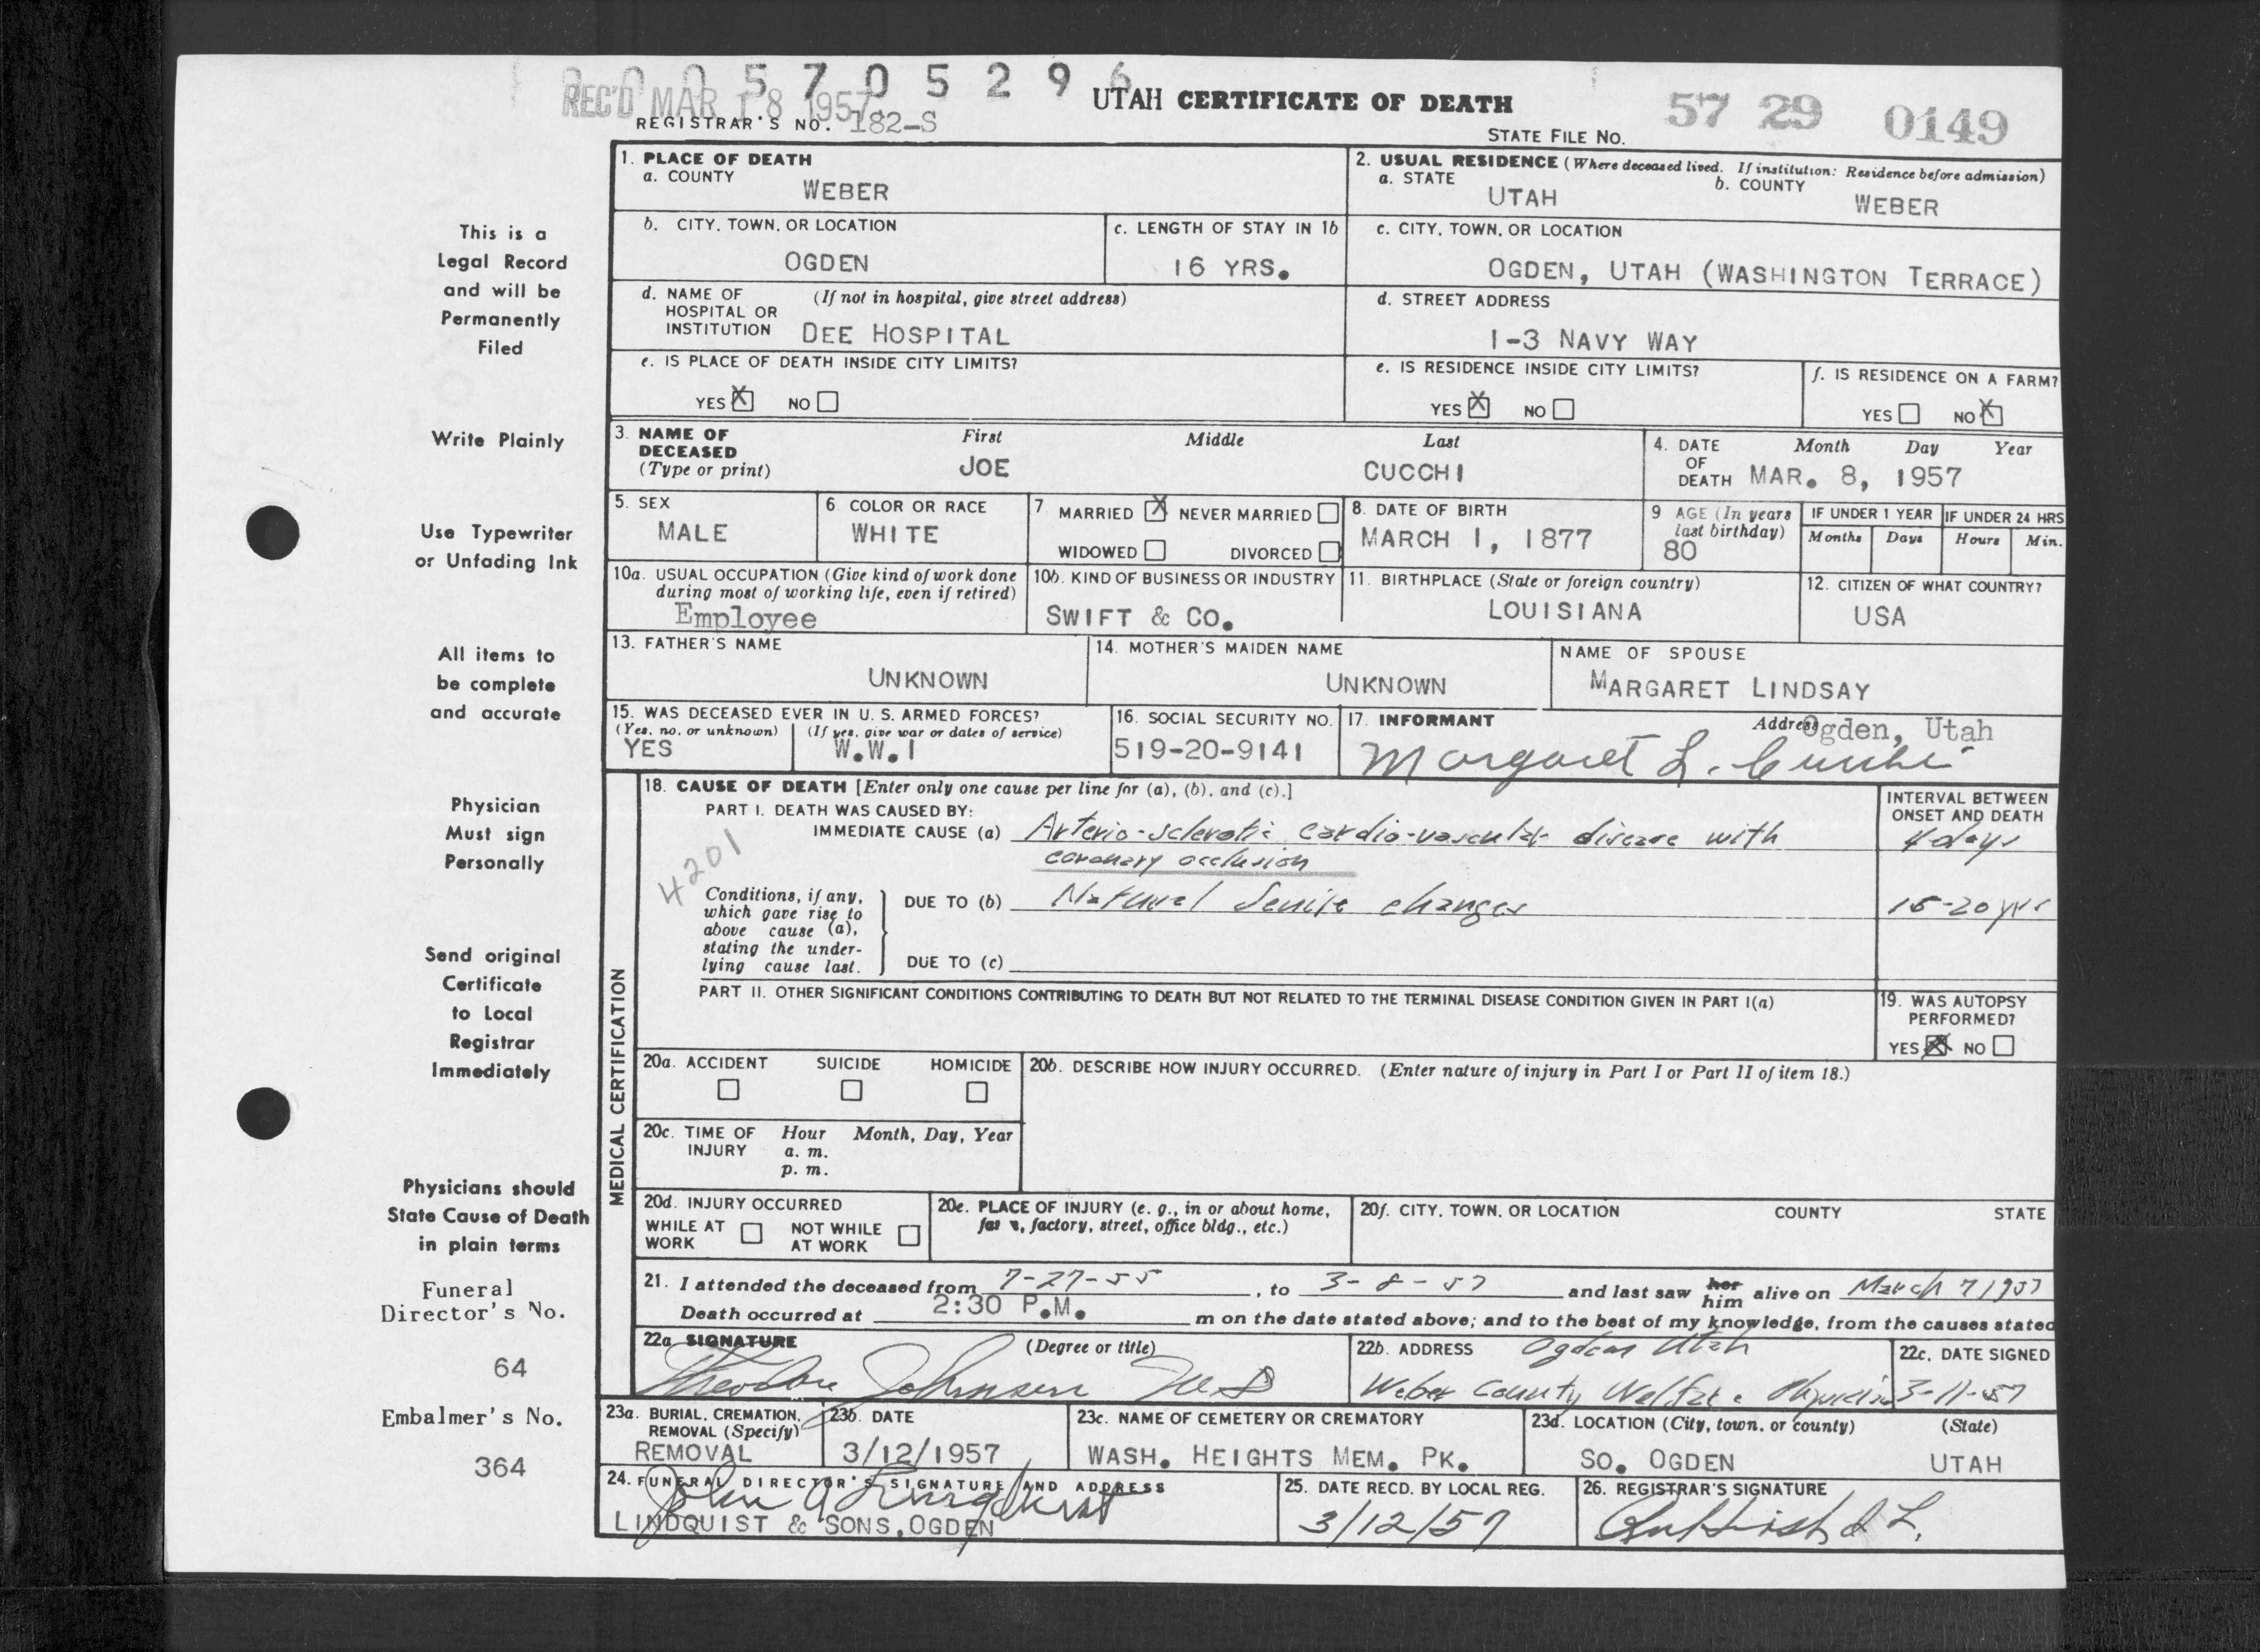 0 0 0 5 7 0 5 2 9 6
REC'D MAR 18 1957
UTAH CERTIFICATE OF DEATH
REGISTRAR'S NO. 182-S
STATE FILE NO. 57 29 0149
This is a
Legal Record
and will be
Permanently
Filed
Write Plainly
Use Typewriter
or Unfading Ink
All items to
be complete
and accurate
Physician
Must sign
Personally
Send original
Certificate
to Local
Registrar
Immediately
Physicians should
State Cause of Death
in plain terms
Funeral
Director's No.
64
Embalmer's No.
364
1. PLACE OF DEATH
a. COUNTY
WEBER
2. USUAL RESIDENCE (Where deceased lived. If institution: Residence before admission)
a. STATE
UTAH
b. COUNTY
WEBER
b. CITY, TOWN, OR LOCATION
OGDEN
c. LENGTH OF STAY IN 1b
16 YRS.
c. CITY, TOWN, OR LOCATION
OGDEN, UTAH (WASHINGTON TERRACE)
d. NAME OF (If not in hospital, give street address)
HOSPITAL OR
INSTITUTION DEE HOSPITAL
d. STREET ADDRESS
1-3 NAVY WAY
e. IS PLACE OF DEATH INSIDE CITY LIMITS?
YES X NO
e. IS RESIDENCE INSIDE CITY LIMITS?
YES X NO
f. IS RESIDENCE ON A FARM?
YES NO X
3. NAME OF First Middle Last
DECEASED
(Type or print) JOE CUCCHI
4. DATE Month Day Year
OF
DEATH MAR. 8, 1957
5. SEX
MALE
6. COLOR OR RACE
WHITE
7 MARRIED X NEVER MARRIED
WIDOWED DIVORCED
8. DATE OF BIRTH
MARCH 1, 1877
9 AGE (In years
last birthday)
80
IF UNDER 1 YEAR
Months Days
IF UNDER 24 HRS
Hours Min.
10a. USUAL OCCUPATION (Give kind of work done
during most of working life, even if retired)
Employee
10b. KIND OF BUSINESS OR INDUSTRY
SWIFT & CO.
11. BIRTHPLACE (State or foreign country)
LOUISIANA
12. CITIZEN OF WHAT COUNTRY?
USA
13. FATHER'S NAME
UNKNOWN
14. MOTHER'S MAIDEN NAME
UNKNOWN
NAME OF SPOUSE
MARGARET LINDSAY
15. WAS DECEASED EVER IN U. S. ARMED FORCES?
(Yes, no, or unknown) (If yes, give war or dates of service)
YES W.W.I
16. SOCIAL SECURITY NO.
519-20-9141
17. INFORMANT Address
Ogden, Utah
Margaret L. Cucchi
MEDICAL CERTIFICATION
18. CAUSE OF DEATH [Enter only one cause per line for (a), (b), and (c).]
PART I. DEATH WAS CAUSED BY:
INTERVAL BETWEEN
ONSET AND DEATH
IMMEDIATE CAUSE (a) Arterio-sclerotic cardio-vascular disease with
coronary occlusion
4 days
4201
Conditions, if any,
which gave rise to
above cause (a),
stating the under-
lying cause last.
DUE TO (b) Natural Senile changes
15-20 yrs
DUE TO (c)
PART II. OTHER SIGNIFICANT CONDITIONS CONTRIBUTING TO DEATH BUT NOT RELATED TO THE TERMINAL DISEASE CONDITION GIVEN IN PART I(a)
19. WAS AUTOPSY
PERFORMED?
YES X NO
20a. ACCIDENT SUICIDE HOMICIDE
20b. DESCRIBE HOW INJURY OCCURRED. (Enter nature of injury in Part I or Part II of item 18.)
20c. TIME OF Hour Month, Day, Year
INJURY a. m.
p. m.
20d. INJURY OCCURRED
WHILE AT NOT WHILE
WORK AT WORK
20e. PLACE OF INJURY (e. g., in or about home,
factory, street, office bldg., etc.)
20f. CITY, TOWN, OR LOCATION COUNTY STATE
21. I attended the deceased from 7-27-55, to 3-8-57 and last saw her him alive on March 7 1957
Death occurred at 2:30 P.M. m on the date stated above; and to the best of my knowledge, from the causes stated
22a SIGNATURE (Degree or title)
Theodore Johnson MD
22b. ADDRESS Ogden Utah
Weber County Welfare Physician
22c. DATE SIGNED
3-11-57
23a. BURIAL, CREMATION,
REMOVAL (Specify)
REMOVAL
23b. DATE
3/12/1957
23c. NAME OF CEMETERY OR CREMATORY
WASH. HEIGHTS MEM. PK.
23d. LOCATION (City, town, or county) (State)
SO. OGDEN UTAH
24. FUNERAL DIRECTOR'S SIGNATURE AND ADDRESS
John A Lindquist
LINDQUIST & SONS, OGDEN
25. DATE RECD. BY LOCAL REG.
3/12/57
26. REGISTRAR'S SIGNATURE